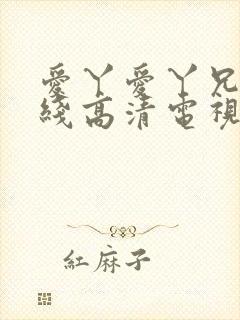 愛丫愛丫兄
綫高清電視
紅麻子